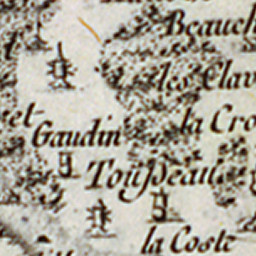 Beauch
les Clav
et
Gaudin
la Cro
Toußeau
la Coste